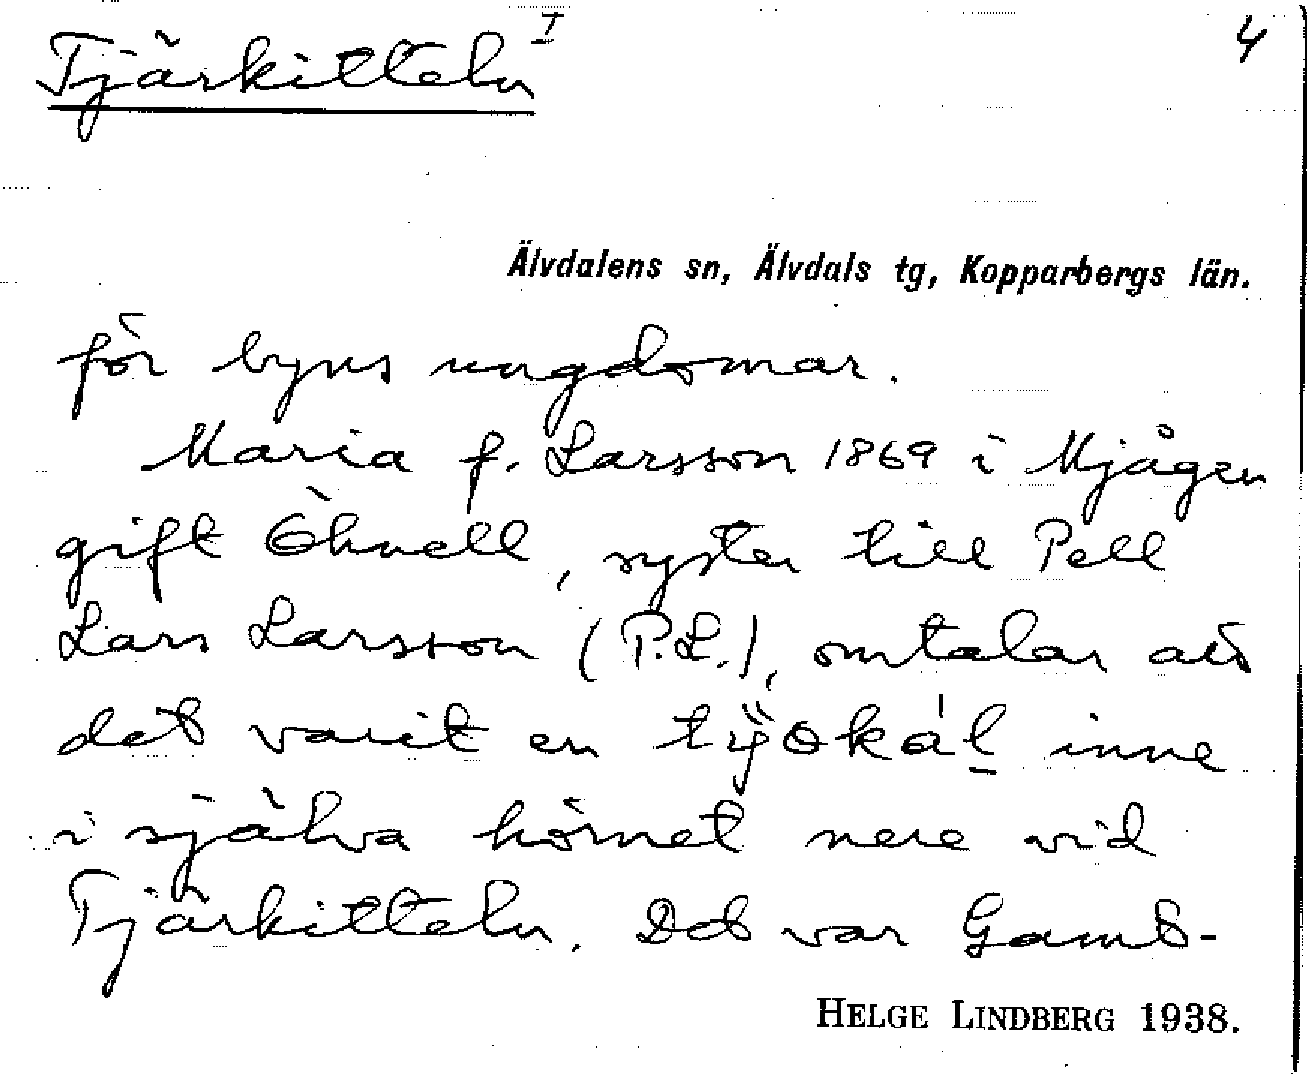 Tjärkitteln I 4
Älvdalens sn, Älvdals tg, Kopparbergs län.
för byns ungdomar.
Maria f. Larsson 1869 i Mjågen
gift Öhnell, syster till Pell
Lars Larsson (P.L.), omtalar att
det varit en inne
i själva hörnet nere vid
Tjärkitteln. Det var Gamt-
HELGE LINDBERG 1938.